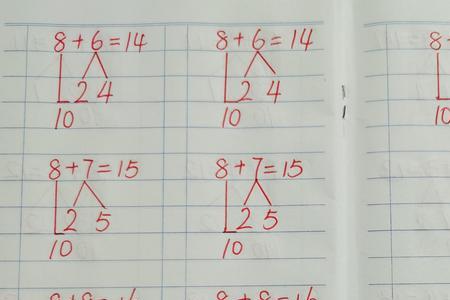 8+6=14 8+6=14 8
2 4 2 4
10 10 10
8+7=15 8+7=15
2 5 2 5
10 10